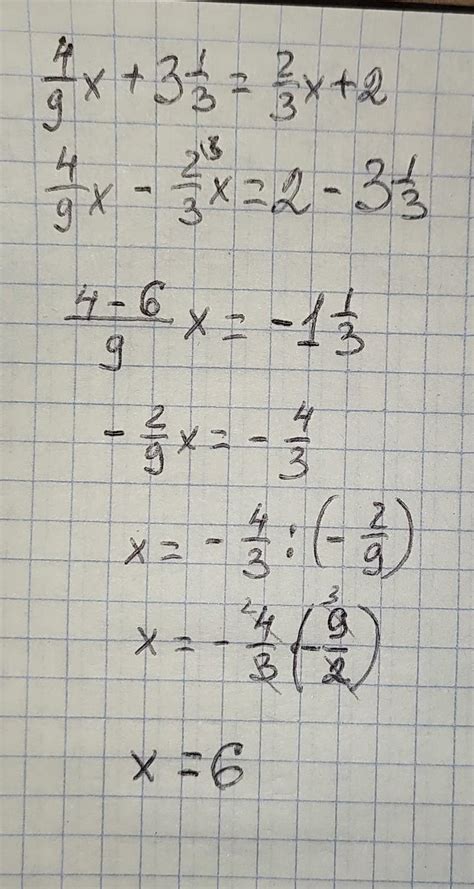 4/9 x + 3 1/3 = 2/3 x + 2
4/9 x - 2/3 ^(3 x = 2 - 3 1/3
(4 - 6)/9 x = - 1 1/3
- 2/9 x = - 4/3
x = - 4/3 : (- 2/9)
x = - ²4/3 (- ³9/2)
x = 6